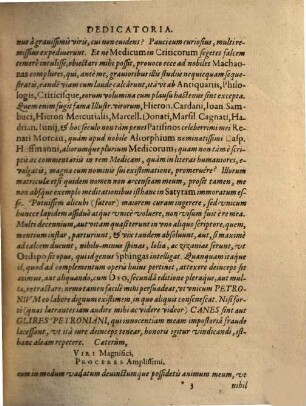 DEDICATORIA.
nus à grauissimis viris, cui non euidens? Pauci cum curiosius, multi re-
missius expediuerunt. Et ne Medicum in Criticorum segetes falcem
temerè intulisse, obiectari mihi possit, prouoco ecce ad nobiles Machao-
nas complures, qui, ante me, grauioribus illis studiis nequicquam seque-
stratis, eandē viam cum laude calcârunt, itā vt ab Antiquariis, Philo-
logis, Criticisque, eorum volumina cum plausu hactenus sint excepta.
Quem enim fugit fama Illustr. virorum, Hieron. Cardani, Ioan. Sam-
buci, Hieron Mercurialis, Marcell. Donati, Marsil. Cagnati, Ha-
drian. Iunij. Et hoc seculo non tàm penes Parisinos celeberrimi mei Re-
nati Moreau, quàm apud nobile Altorphium nominatissimi Casp.
Hoffmanni, aliorumque plurium Medicorum; quam non tàm è scri-
ptis ac commentariis in rem Medicam, quàm in literas humaniores, e-
vulgatis, magna cum nominis sui existimatione, promeruere? Illorum
matriculæ est si quidem nomen non arcensēam meum, prosit tamen, me
non absque exemplo meditationibus istabunc in Satyram immoratum es-
se. Potuissem alicubi (fateor) maiorem curam ingerere, sed vnicum
huncce lapidem assiduò atque vnicè voluere, non visum fuit è re mea.
Multi decennium, aut vltra quasi terunt in vno aliquo scriptore, quem,
dum emendant mussitant, parturiunt, & vix tandem absoluunt, aut, si maximè
ad calcem ducunt, nihilo-minus spinas, lolia, ac zizanias serunt, vt
Oedipo sit opus, quid genus Sphingas intelligat. Quamquam itaque
id, quod ad complementum operis huius pertinet, attexere deinceps sit
animus, aut aliquando, cum Deo, secundâ editione interpolare, aut mul-
ta, retractare, nemo tamen facilè mihi persuadeat, vt vnicum PETRO-
NIVM eo labore dignum existimem, in quo aliquis consenescat. Nisi for-
tè (quos latrantes iam audire mihi ac videre videor) CANES sint aut
GLIRES PETRONIANI, qui innocentiam meam impostorâ fraude
lacessant, vt ità iure deinceps teneor, honoris igitur vindicandi, istbanc
aleam repetere. Caterùm,
VIRI Magnifici,
PROCERES Amplissimi,
cum in modum vadatum deuinctumque possidetis animum meum, vt
* 3 nihil